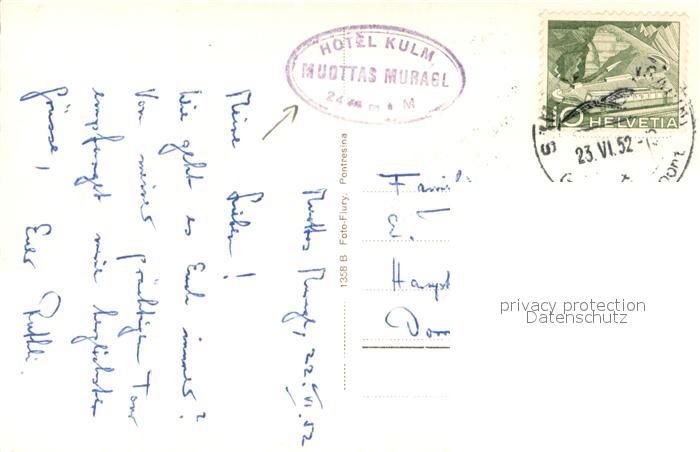 HOTEL KULM
MUOTTAS MURAGL
24 M
HELVETIA
23.VI.52
Muottas Muragl, 22.VI.52
Meine Lieben!
Wie geht es Euch immer?
Von meiner prächtigen Tour
empfanget meine herzlichsten
Grüsse,
Euer Ruthli.
1358 B Foto-Flury, Pontresina
Famil
W.
Haupt
privacy protection
Datenschutz